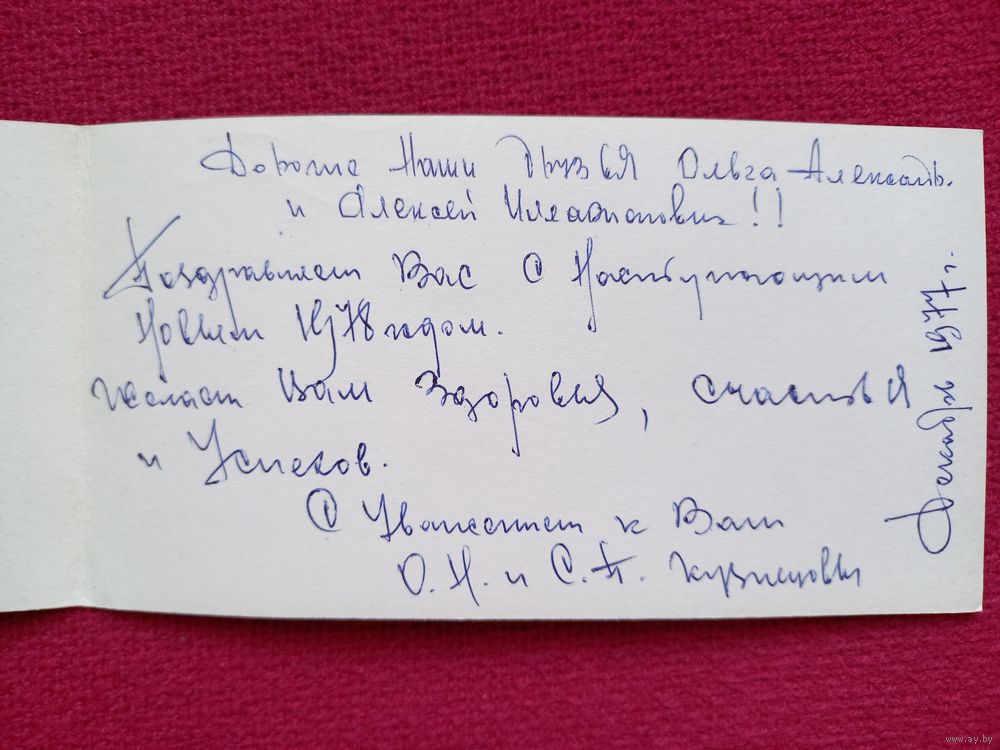 Дорогие Наши Друзья Ольга Александр.
и Алексей Илларионович!!
Поздравляем Вас с Наступающим
Новым 1978 годом.
Желаем Вам Здоровья, счастья
и Успехов.
С Уважением к Вам
О. Н. и С. П. Кузнецовы
Декабрь 1977 г.
www.ay.by